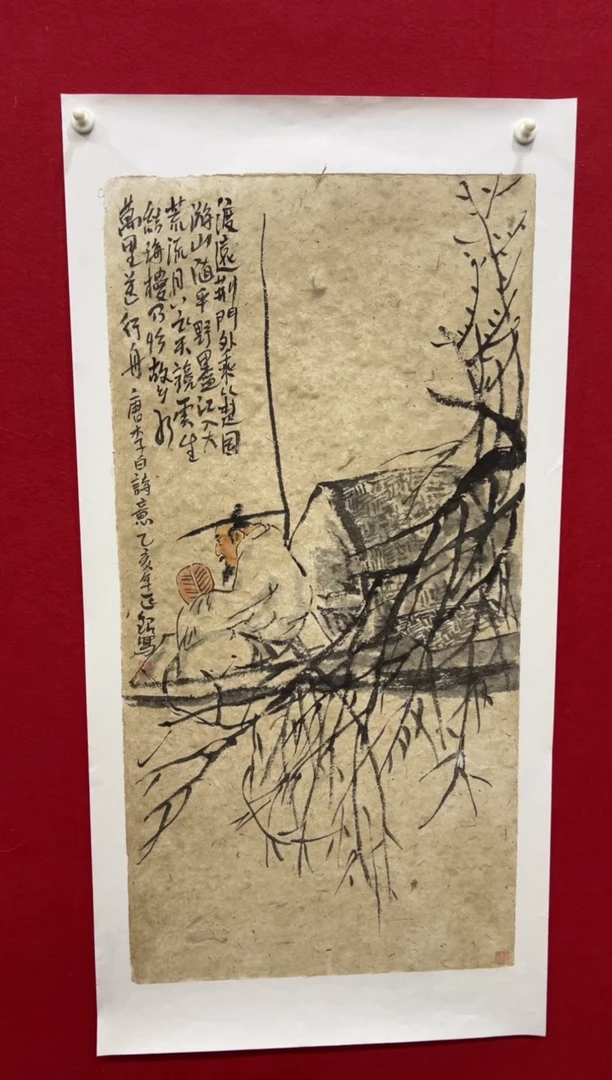 渡遠荆門外來从楚国
游山随平野盡江入大
荒流月下飛天鏡雲生
結海樓仍怜故乡水
萬里送行舟 唐李白詩意乙亥年寫